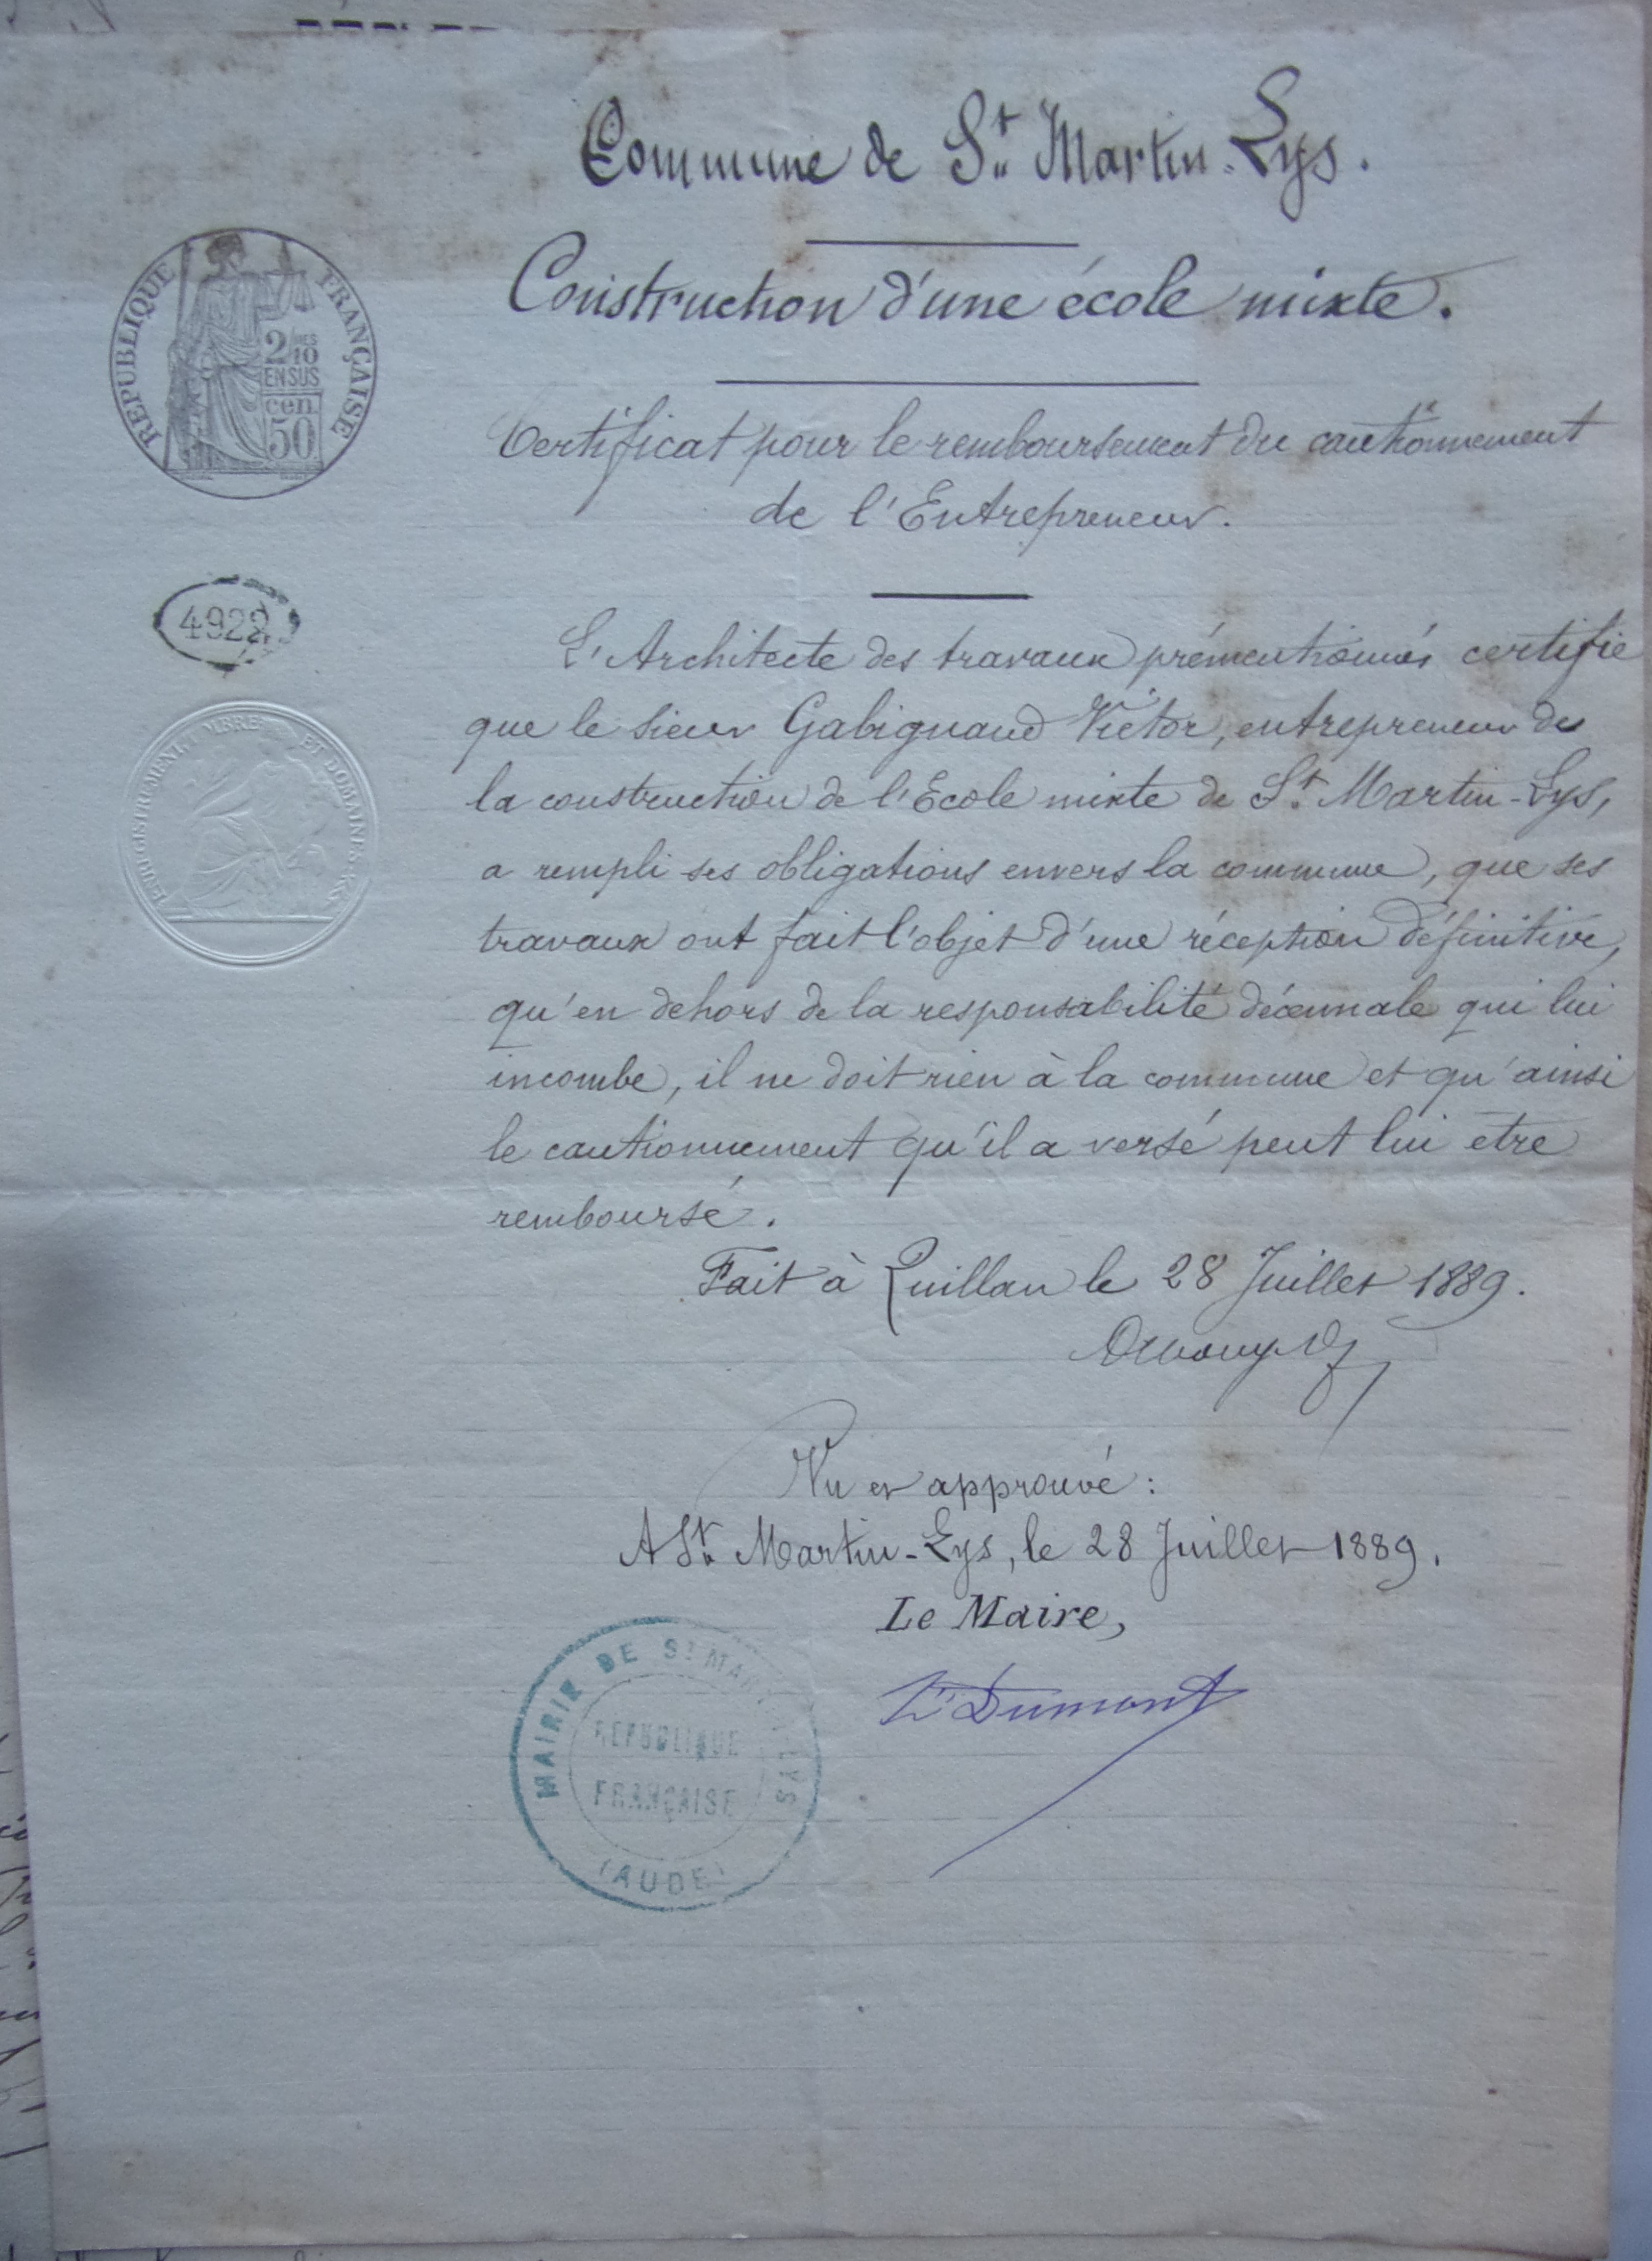 Commune de St Martin-Lys.
Construction d'une école mixte.
Certificat pour le remboursement du cautionnement
de l'Entrepreneur.
REPUBLIQUE FRANÇAISE
2/10
EN SUS
cen.
50
4922
ENREGISTREMENT TIMBRE ET DOMAINES
L'Architecte des travaux prémentionnés certifie
que le sieur Gabignaud Victor, entrepreneur de
la construction de l'Ecole mixte de St Martin-Lys,
a rempli ses obligations envers la commune, que ses
travaux ont fait l'objet d'une réception définitive,
qu'en dehors de la responsabilité décennale qui lui
incombe, il ne doit rien à la commune et qu'ainsi
le cautionnement qu'il a versé peut lui etre
remboursé.
Fait à Quillan le 28 Juillet 1889.
Vu et approuvé :
A St Martin-Lys, le 28 Juillet 1889.
Le Maire,
Dumont
MAIRIE DE St MARTIN-LYS
REPUBLIQUE
FRANÇAISE
(AUDE)